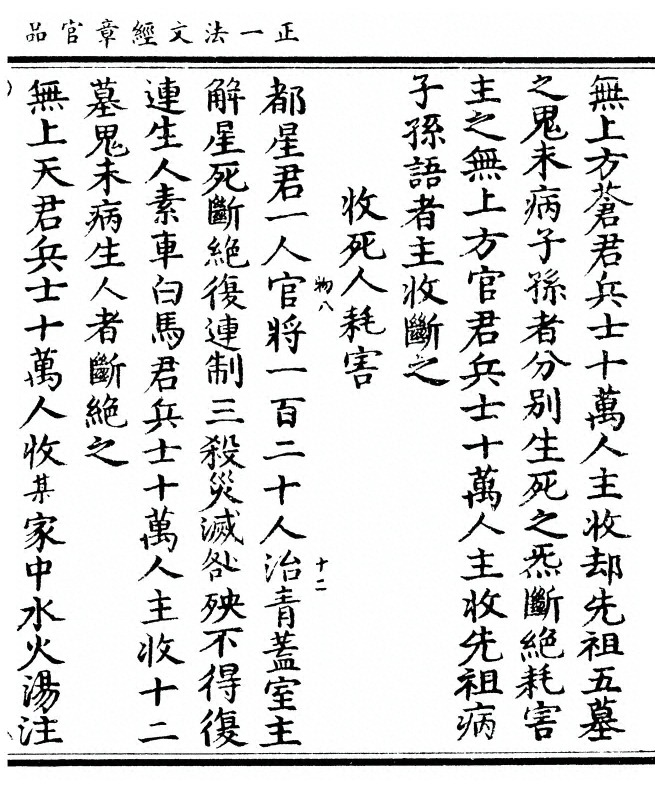 正一法文經章官品
無上方蒼君兵士十萬人主收却先祖五墓
之鬼未病子孫者分別生死之炁斷絕耗害
主之無上方官君兵士十萬人主收先祖病
子孫語者主收斷之
收死人耗害
物八
十二
都星君一人官將一百二十人治青蓋室主
解星死斷絕復連制三殺災滅咎殃不得復
連生人素車白馬君兵士十萬人主收十二
墓鬼未病生人者斷絕之
無上天君兵士十萬人收某家中水火湯注